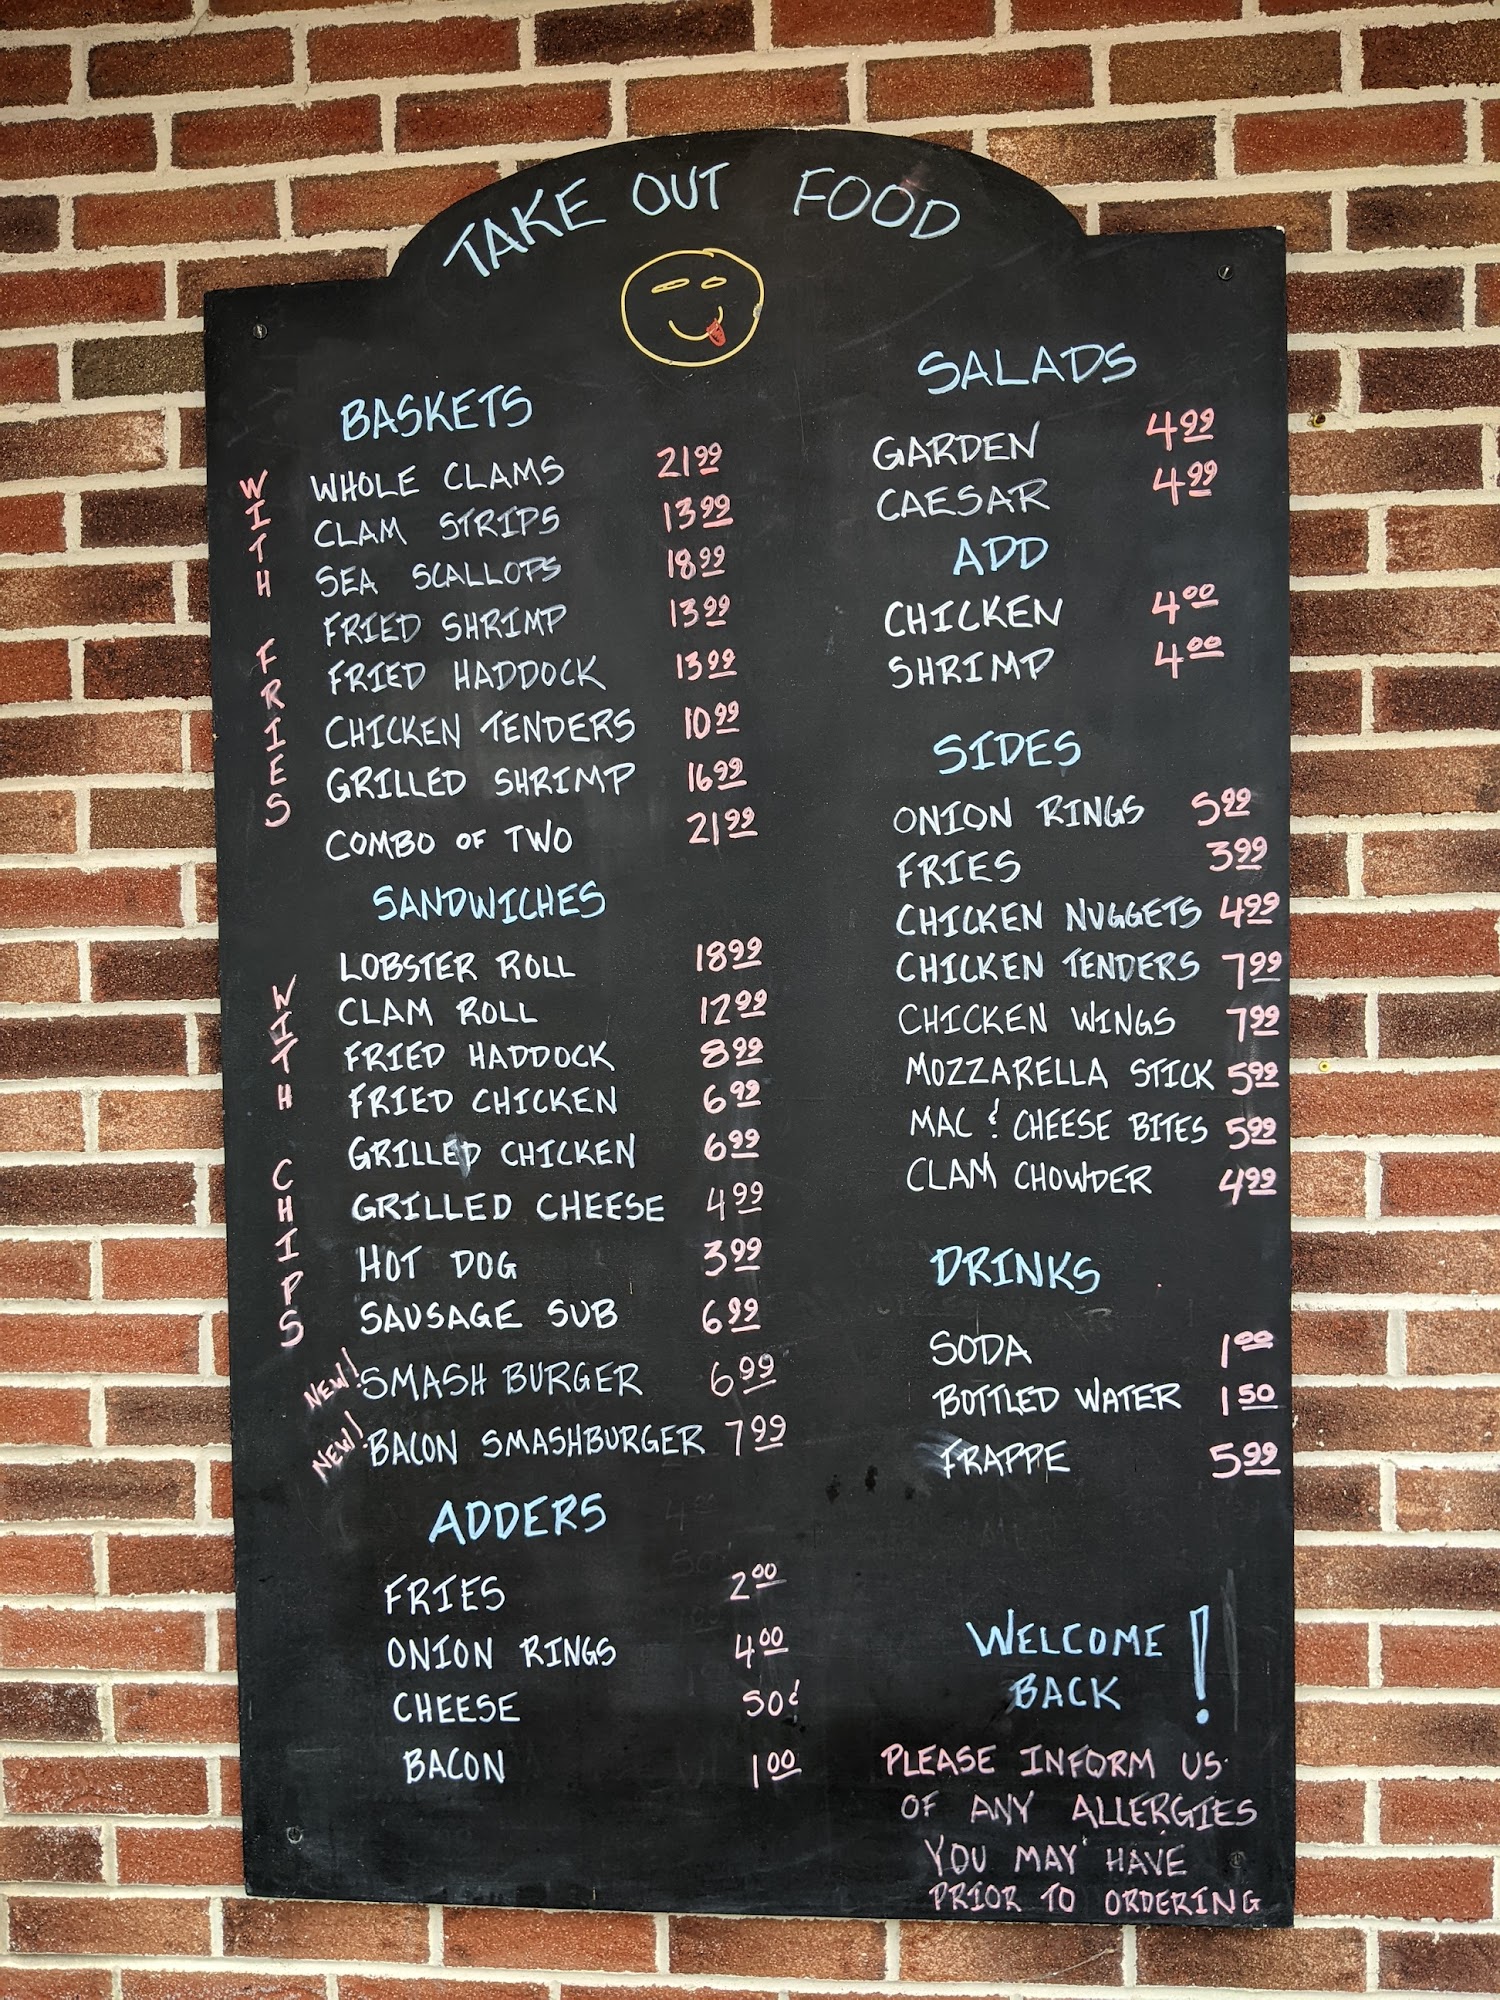 TAKE OUT FOOD
BASKETS
WITH FRIES
WHOLE CLAMS 21 99
CLAM STRIPS 13 99
SEA SCALLOPS 18 99
FRIED SHRIMP 13 99
FRIED HADDOCK 13 99
CHICKEN TENDERS 10 99
GRILLED SHRIMP 16 99
COMBO OF TWO 21 99
SANDWICHES
WITH CHIPS
LOBSTER ROLL 18 99
CLAM ROLL 12 99
FRIED HADDOCK 8 99
FRIED CHICKEN 6 99
GRILLED CHICKEN 6 99
GRILLED CHEESE 4 99
HOT DOG 3 99
SAUSAGE SUB 6 99
NEW! SMASH BURGER 6 99
NEW! BACON SMASHBURGER 7 99
ADDERS
FRIES 2 00
ONION RINGS 4 00
CHEESE 50¢
BACON 1 00
SALADS
GARDEN 4 99
CAESAR 4 99
ADD
CHICKEN 4 00
SHRIMP 4 00
SIDES
ONION RINGS 5 99
FRIES 3 99
CHICKEN NUGGETS 4 99
CHICKEN TENDERS 7 99
CHICKEN WINGS 7 99
MOZZARELLA STICK 5 99
MAC & CHEESE BITES 5 99
CLAM CHOWDER 4 99
DRINKS
SODA 1 00
BOTTLED WATER 1 50
FRAPPE 5 99
WELCOME
BACK!
PLEASE INFORM US
OF ANY ALLERGIES
YOU MAY HAVE
PRIOR TO ORDERING